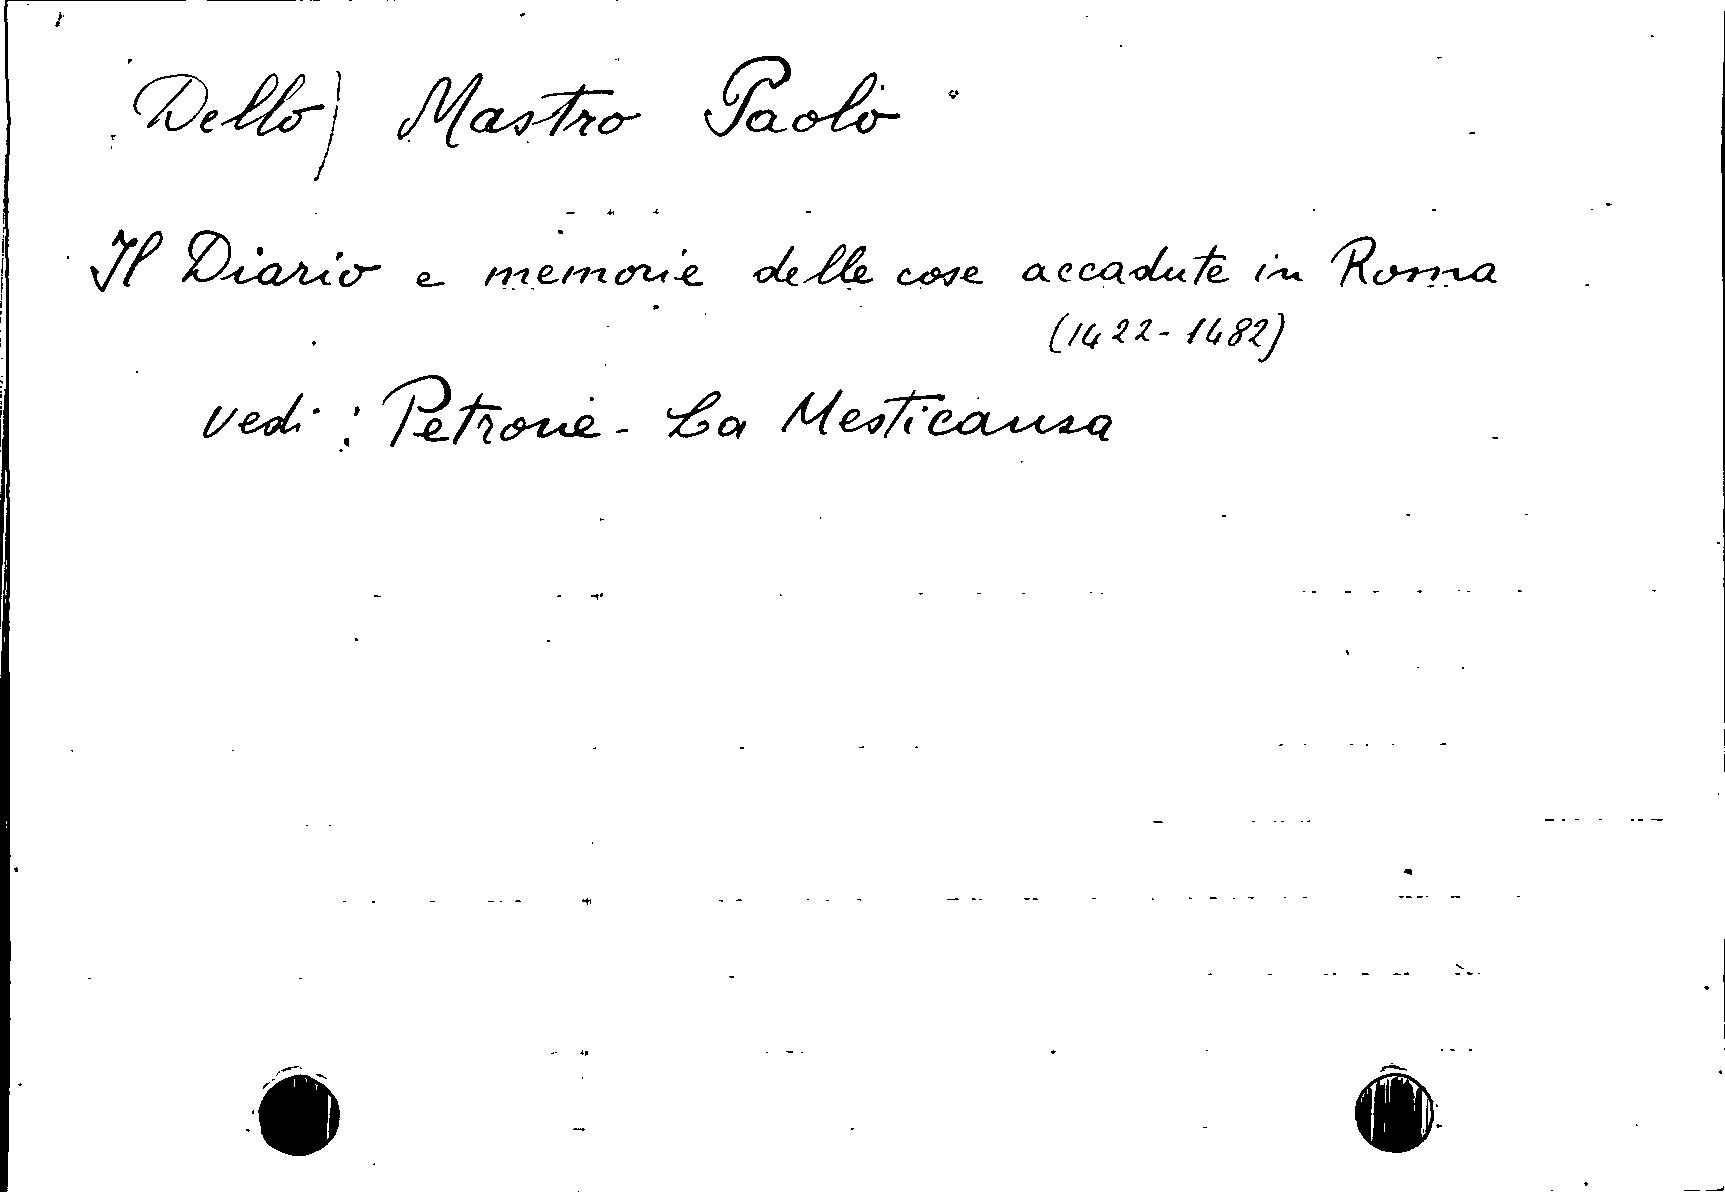 Dello) Mastro Paolo
Il Diario e memorie delle cose accadute in Roma
(1422-1482)
vedi: Petrone - La Mesticanza